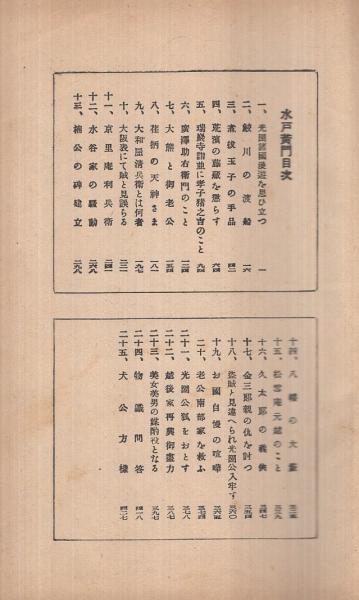 水戸黄門目次
一、光圀諸國漫遊を思ひ立つ 一
二、鮫川の渡船 一六
三、煮拔玉子の手品 四二
四、荒濱の藤藏を懲らす 六四
五、瑞巖寺詣並に孝子猪之吉のこと 九四
六、廣澤助右衞門のこと 一二四
七、大熊と御老公 一五四
八、荏柄の天神さま 一八二
九、大和屋清兵衛とは何者 一九七
十、大阪表にて賊と見誤らる 二二一
十一、京里庵利兵衛 二四一
十二、水谷家の騷動 二六八
十三、楠公の碑建立 二九九
十四、八幡の大
十五、松雲庵元越のこと
十六、久太郎の義俠
十七、金三郎親の仇を討つ 三五四
十八、盜賊と見違へられ光圀公入牢す 三六〇
十九、お國自慢の喧嘩 三六五
二十、老公南部家を救ふ 三七四
二十一、光圀公狐をおとす 三七八
二十二、越後家再興御盡力 三八七
二十三、美女美男の媒酌役となる 三九七
二十四、物識問答 四一八
二十五、犬公方樣 四二七